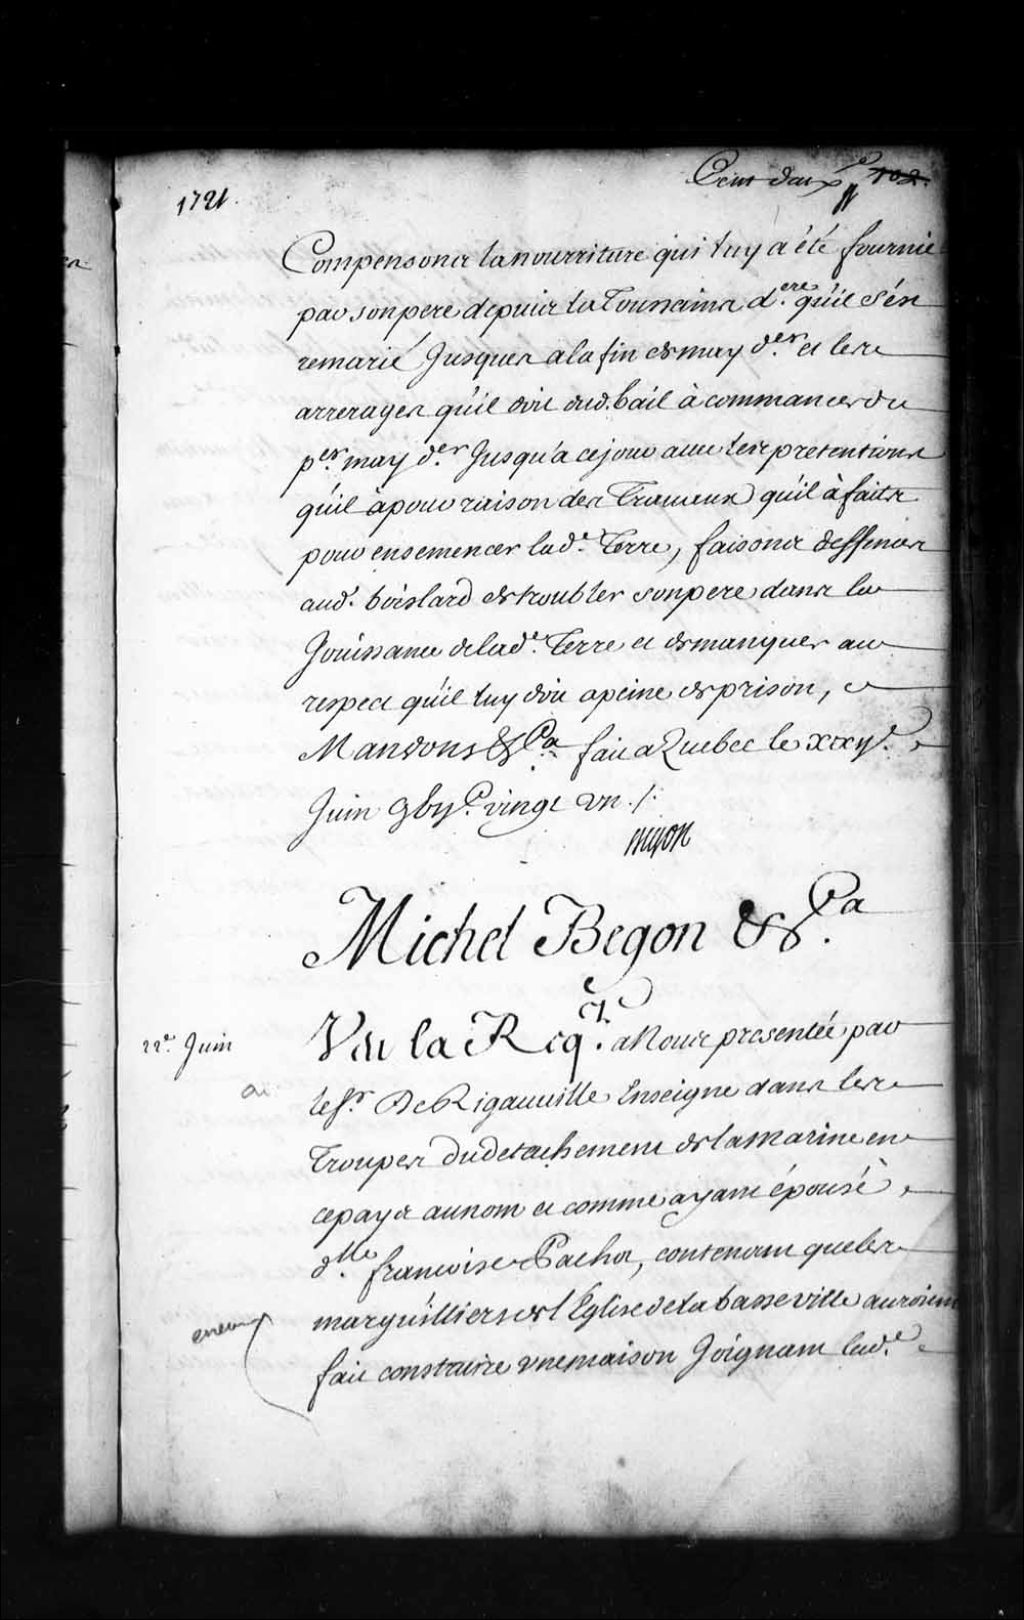 1721
Cent deux 102.
Compensons la nourriture qui luy a été fournie
par son pere depuis la Toussaint d.ere qu'il s'est
remarié Jusques a la fin de may d.er et les
arrerages qu'il doit dud. bail à commancer du
p.er may d.er Jusqu'a ce jour avec les pretentions
qu'il à pour raison des Travaux qu'il à faits
pour ensemencer lad.e Terre, faisons deffenses
aud. boislard de troubler son pere dans la
Jouissance de lad.e Terre et de manquer au
respect qu'il luy doit a peine de prison,
Mandons &ca fait a Quebec le
Juin vingt un ./.
Begon
Michel Begon &ca.
22.e Juin
Vu la Req.te a Nous presentée par
le S.r De Rigauville Enseigne dans les
Troupes du detachement de la marine en
ce pays au nom et comme ayant épousé
d.lle francoise Pachot, contenant que les
marguilliers de l'Eglise de la basse ville auroient
fait construire une maison Joignant lad.e